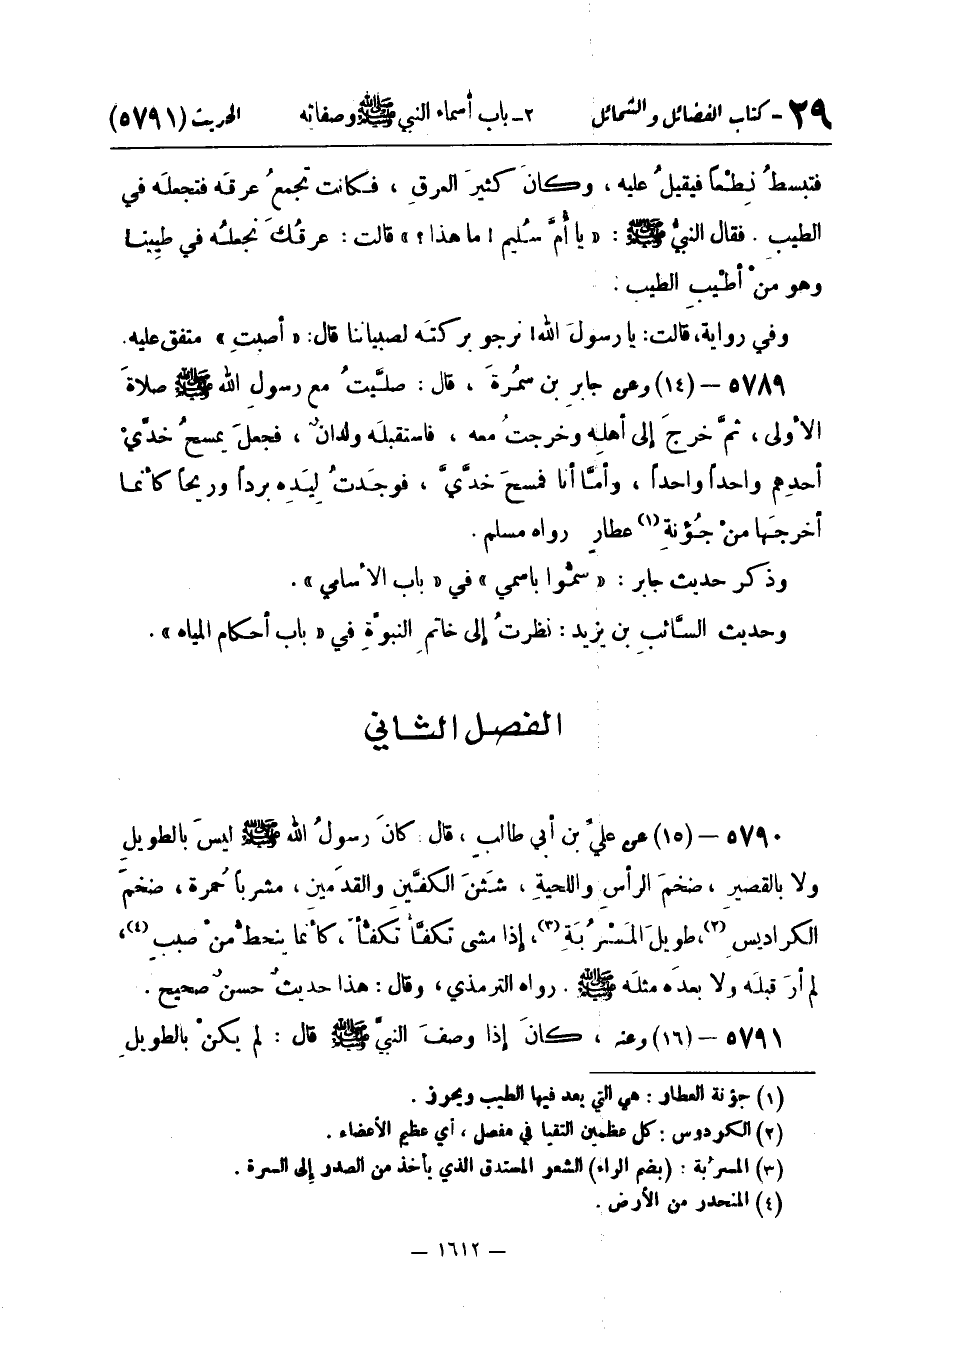 ٢٩- كتاب الفضائل والشمائل ٢- باب أسماء النبي ﷺ وصفاته الحديث (٥٧٩١)
فتبسطُ نِطْعاً فيقيلُ عليه ، وكانَ كثيرَ العرقِ ، فكانت تجمعُ عرقَه فتجعله في
الطيبِ . فقال النبيُّ ﷺ : « يا أُمَّ سُليم ! ما هذا ؟ » قالت : عرقُكَ نجعلُه في طيبِنا
وهو من أطْيبِ الطيبِ :
وفي رواية، قالت: يا رسولَ الله! نرجو بركتَه لصبياننا قال: « أصبتِ » متفق عليه.
٥٧٨٩ – (١٤) وعن جابرِ بن سمُرةَ ، قال : صلَّيتُ مع رسولِ الله ﷺ صلاةَ
الأولى ، ثمَّ خرجَ إلى أهلِه وخرجتُ معه ، فاستقبلَه ولدانٌ ، فجعلَ يمسحُ خدَّيْ
أحدِهم واحداً واحداً ، وأمَّا أنا فمسحَ خدَّيَّ ، فوجَدتُ لِيَدِه برداً وريحاً كأنما
أخرجَها منْ جُؤنةِ (١) عطارٍ رواه مسلم .
وذكر حديث جابر : « سمُّوا باسمي » في « باب الأسامي » .
وحديث السَّائبِ بن يزيد : نظرتُ إلى خاتمِ النبوَّةِ في « باب أحكام المياه » .
الفصل الثاني
٥٧٩٠ – (١٥) عن عليِّ بن أبي طالبٍ ، قال : كانَ رسولُ الله ﷺ ليسَ بالطويلِ
ولا بالقصيرِ ، ضخمَ الرأسِ واللحيةِ ، شثنَ الكفَّينِ والقدَمينِ ، مشرباً حُمرة ، ضخمَ
الكراديس (٢)، طويلَ المَسْرُبَةِ (٣)، إذا مشى تكفَّأ تكفُّأً ، كأنما ينحطُّ منْ صببٍ (٤)،
لم أرَ قبلَه ولا بعدَه مثلَه ﷺ . رواه الترمذي ، وقال : هذا حديثٌ حسنٌ صحيح .
٥٧٩١ – (١٦) وعنه ، كانَ إذا وصفَ النبيَّ ﷺ قال : لم يكنْ بالطويلِ
(١) جؤنة العطار : هي التي يعد فيها الطيب ويحوز .
(٢) الكردوس : كل عظمين التقيا في مفصل ، أي عظيم الأعضاء .
(٣) المسرُبة : (بضم الراء) الشعر المستدق الذي يأخذ من الصدر إلى السرة .
(٤) المنحدر من الأرض .
– ١٦١٢ –